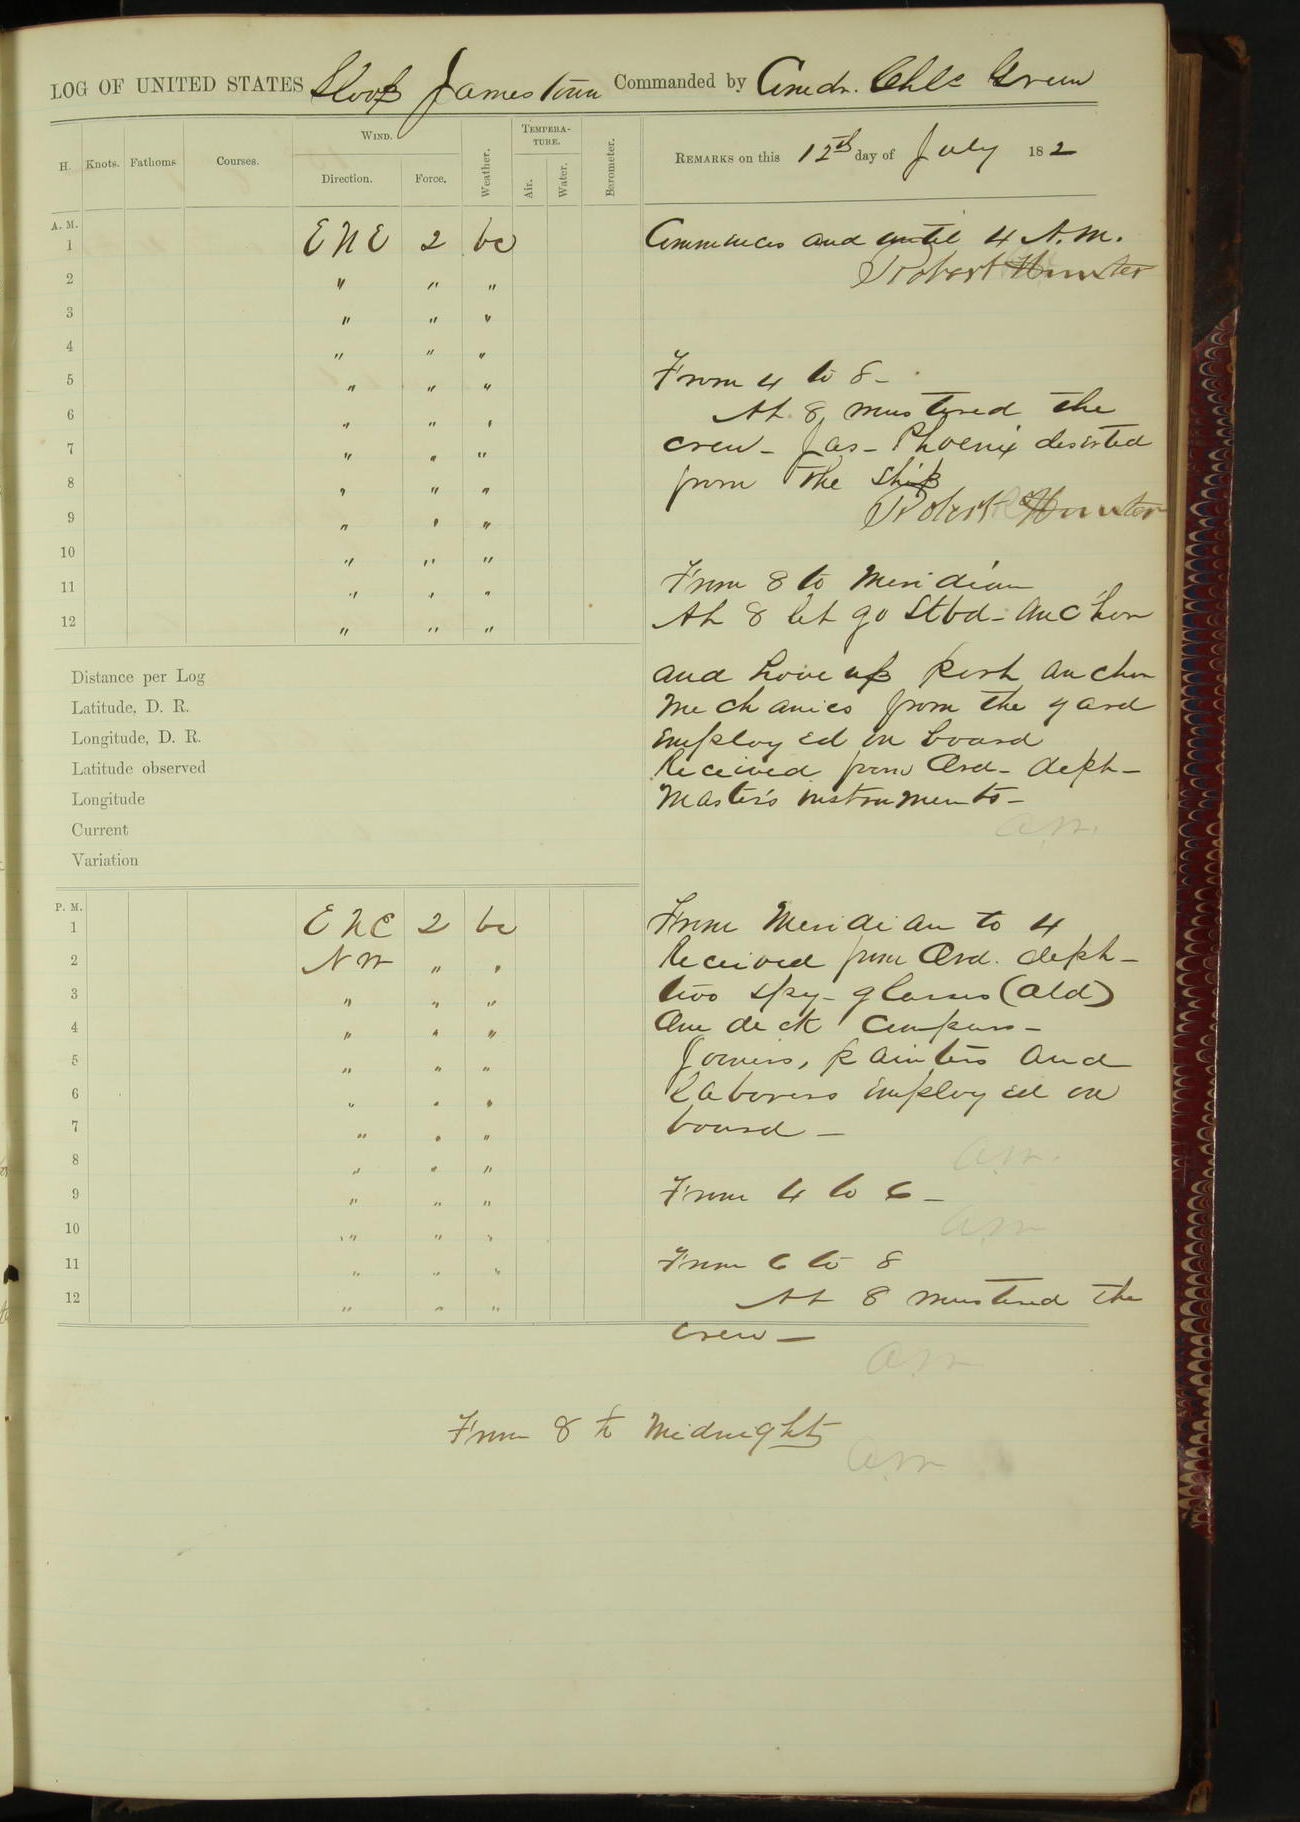 LOG OF UNITED STATES Sloop Jamestown Commanded by Comdr. Chls Green
H. Knots. Fathoms Courses. WIND. Direction. Force. Weather. TEMPERATURE. Air. Water. Barometer. REMARKS on this 12th day of July 182
A. M.
1 ENE 2 bc Commences and until 4 A.M.
Robert Hunter
2 " " "
3 " " "
4 " " "
From 4 to 8 -
5 " " "
At 8, mustered the
6 " " "
crew - Jas - Phoenix deserted
7 " " "
from the ship
8 " " "
Robert Hunter
9 " " "
10 " " "
From 8 to Meridian
11 " " "
At 8 let go Stbd - anchor
12 " " "
Distance per Log
and hove up port anchor
Latitude, D. R.
Mechanics from the yard
Longitude, D. R.
employed on board
Latitude observed
Received from Ord - dept -
Longitude
Master's instruments -
Current
Variation
P. M.
1 ENE 2 bc From Meridian to 4
2 NW " " Received from Ord. dept -
3 " " " two spy - glasses (old)
4 " " " One deck Compass -
5 " " " Joiners, painters and
6 " " " Laborers employed on
7 " " " board -
8 " " "
9 " " " From 4 to 6 -
10 " " "
11 " " " From 6 to 8
12 " " " At 8 mustered the
crew -
From 8 to Midnight